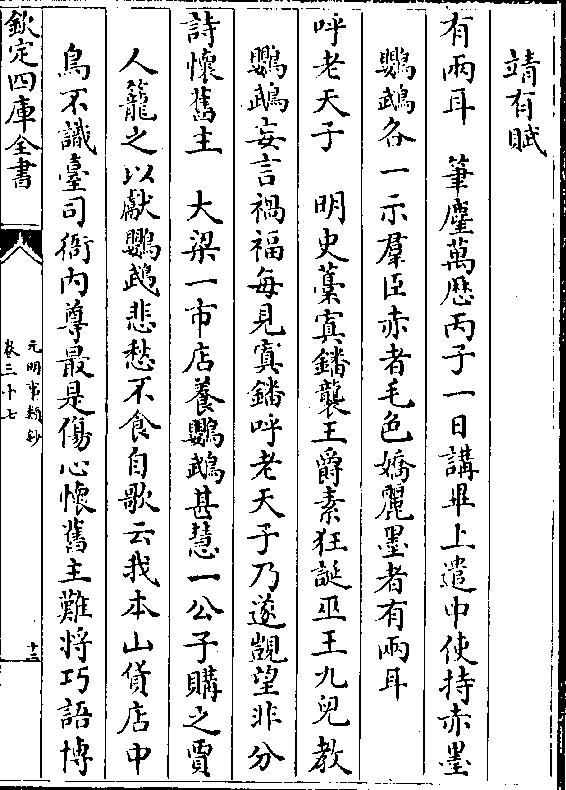 靖有賦
有兩耳　筆麈萬厯丙子一日講畢上遣中使持赤墨
鸚鵡各一示羣臣赤者毛色嬌麗墨者有兩耳
呼老天子　明史藁寘鐇襲王爵素狂誕巫王九兒教
鸚鵡妄言禍福每見寘鐇呼老天子乃遂覬望非分
詩懷舊主　大梁一市店養鸚鵡甚慧一公子購之賈
人籠之以獻鸚鵡悲愁不食自歌云我本山貨店中
鳥不識臺司衙內尊最是傷心懷舊主難將巧語博
欽定四庫全書
元明事類鈔
卷三十七
十三